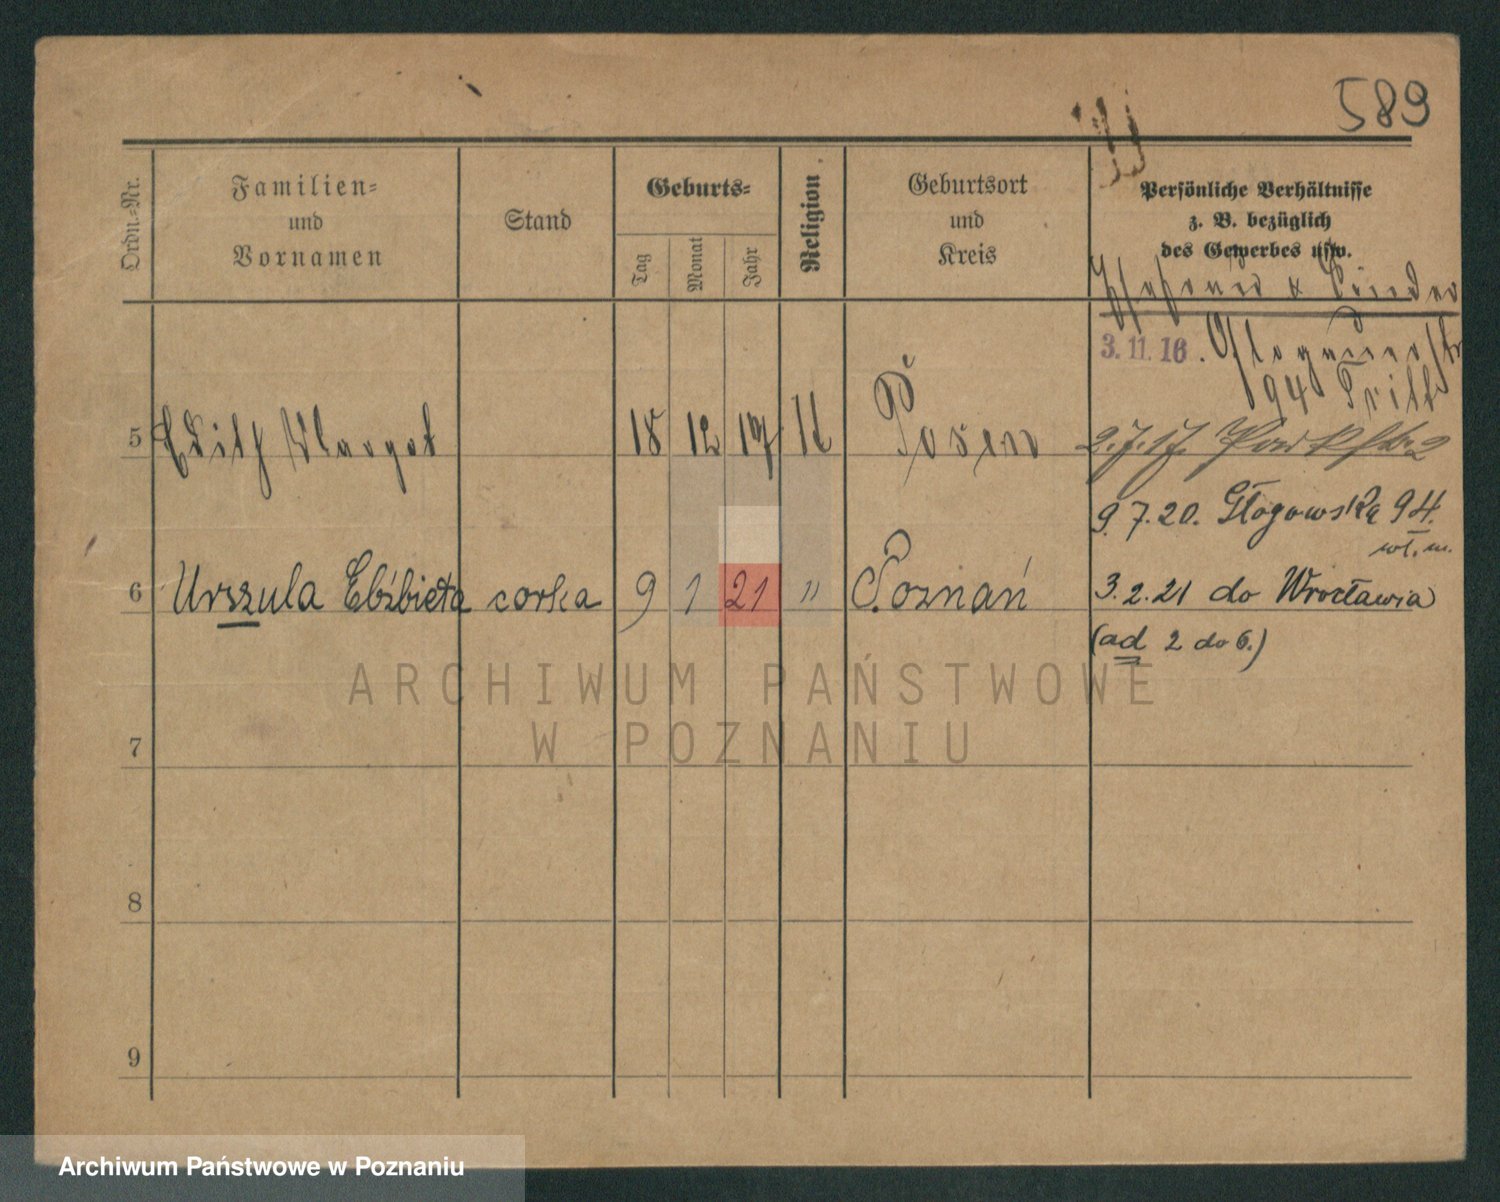 589
Ordn.=Nr.
Familien=
und
Vornamen
Stand
Geburts=
Tag
Monat
Jahr
Religion.
Geburtsort
und
Kreis
Persönliche Verhältnisse
z. B. bezüglich
des Gewerbes usw.
3. 11. 16.
94
5 Edith Margot 18 12 Posen 2.7.17.
9.7.20. Głogowska 94.
wł. m.
6 Urszula Elżbieta corka 9 1 21 " Poznań 3.2.21 do Wrocławia
(ad 2 do 6.)
ARCHIWUM PAŃSTWOWE
W POZNANIU
7
8
9
Archiwum Państwowe w Poznaniu